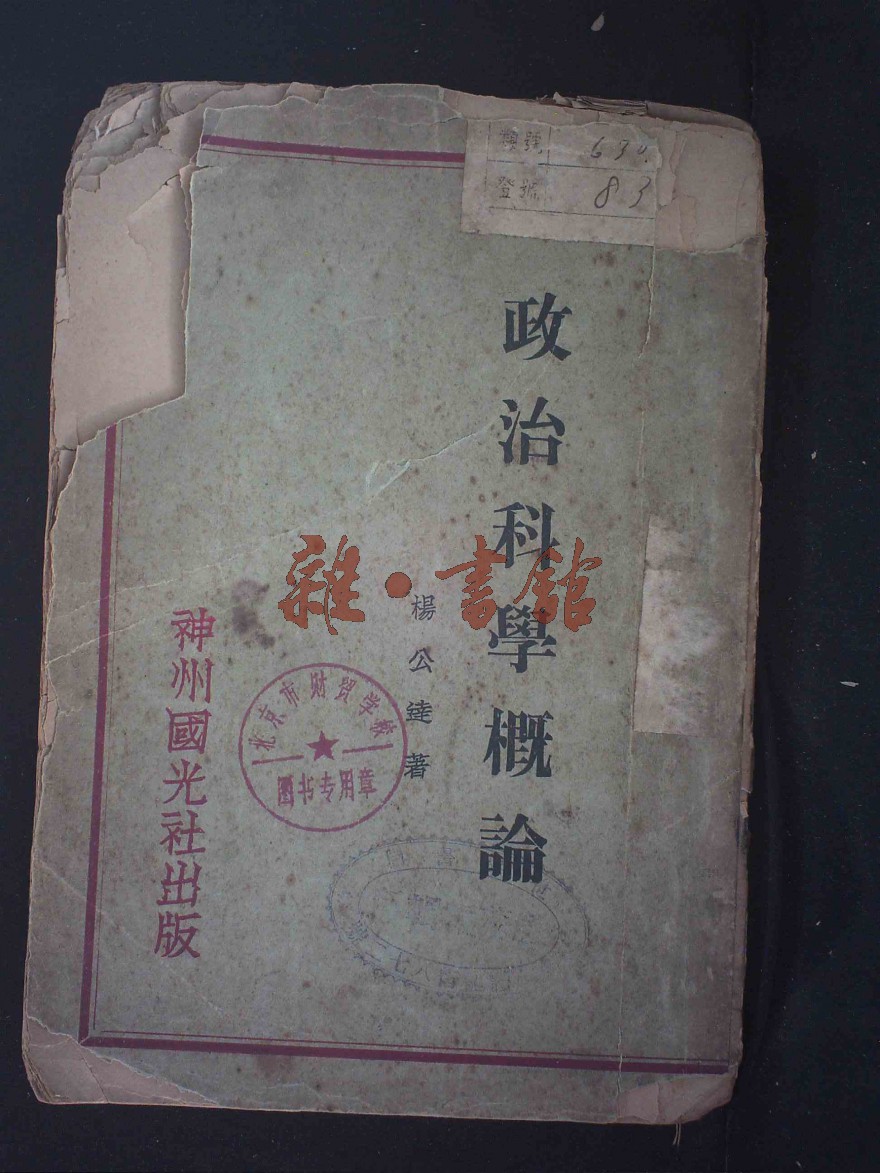 類號 630.
登號 83
政治科學概論
楊公達著
雜·書館
神州國光社出版
北京市财贸学校
图书专用章